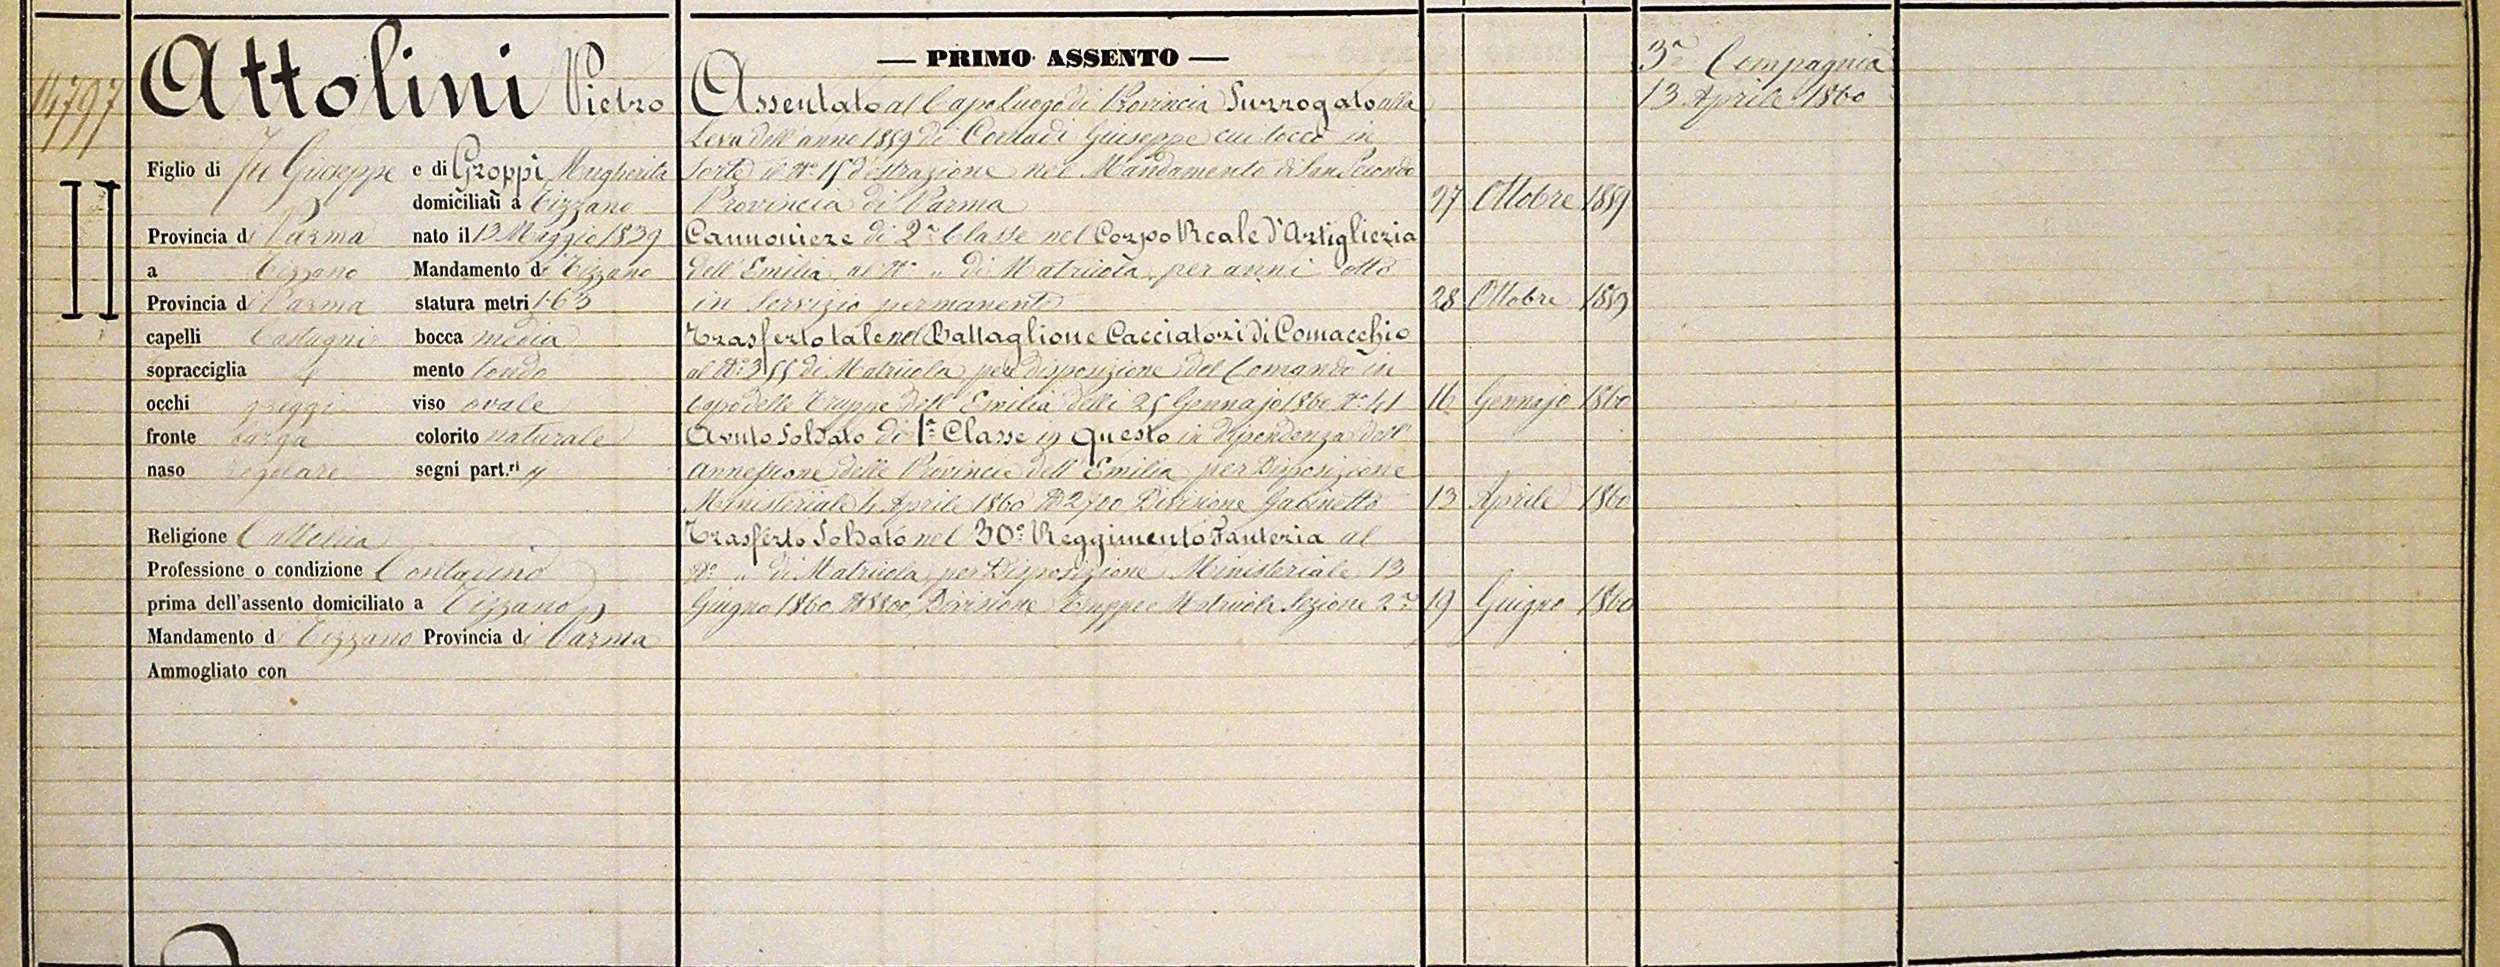 14797
II
Attolini Pietro
Figlio di fu Giuseppe e di Groppi Margherita
domiciliati a Tizzano
Provincia di Parma nato il 13 Maggio 1839
a Tizzano Mandamento di Tizzano
Provincia di Parma statura metri 1.63
capelli Castagni bocca media
sopracciglia mento tondo
occhi griggi viso ovale
fronte larga colorito naturale
naso regolare segni part.ri
Religione Cattolica
Professione o condizione Contadino
prima dell'assento domiciliato a Tizzano
Mandamento di Tizzano Provincia di Parma
Ammogliato con
— PRIMO ASSENTO —
Assentato al Capo luogo di Provincia Surrogato alla
Leva dell'anno 1859 di Corradi Giuseppe cui toccò in
sorte il N° 15 d'estrazione nel Mandamento di San Secondo
Provincia di Parma 27 Ottobre 1859
Cannoniere di 2ª Classe nel Corpo Reale d'Artiglieria
dell'Emilia al N° „ di Matricola per anni otto
in servizio permanente 28 Ottobre 1859
Trasferto tale nel Battaglione Cacciatori di Comacchio
al N° 355 di Matricola per disposizione del Comando in
Capo delle Truppe dell'Emilia delli 25 Gennajo 1860 N° 41 16 Gennajo 1860
Avuto Soldato di 1ª Classe in questo in dipendenza dell'
annessione delle Provincie dell'Emilia per Disposizione
Ministeriale 4 Aprile 1860 N° 2700 Divisione Gabinetto 13 Aprile 1860
Trasferto Soldato nel 30° Reggimento Fanteria al
N° „ di Matricola per Disposizione Ministeriale 13
Giugno 1860 N° 8800 Divisione Truppe e Matricola Sezione 2ª 19 Giugno 1860
3ª Compagnia
13 Aprile 1860